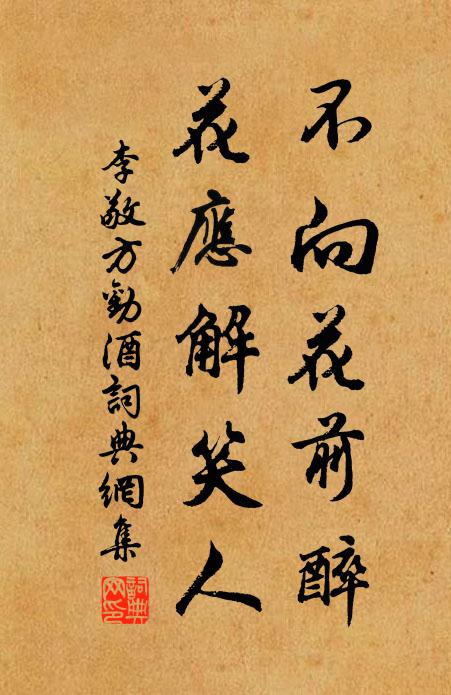 不向花前醉
花應解笑人
李敬方勸酒詞典網集
詞典
网印